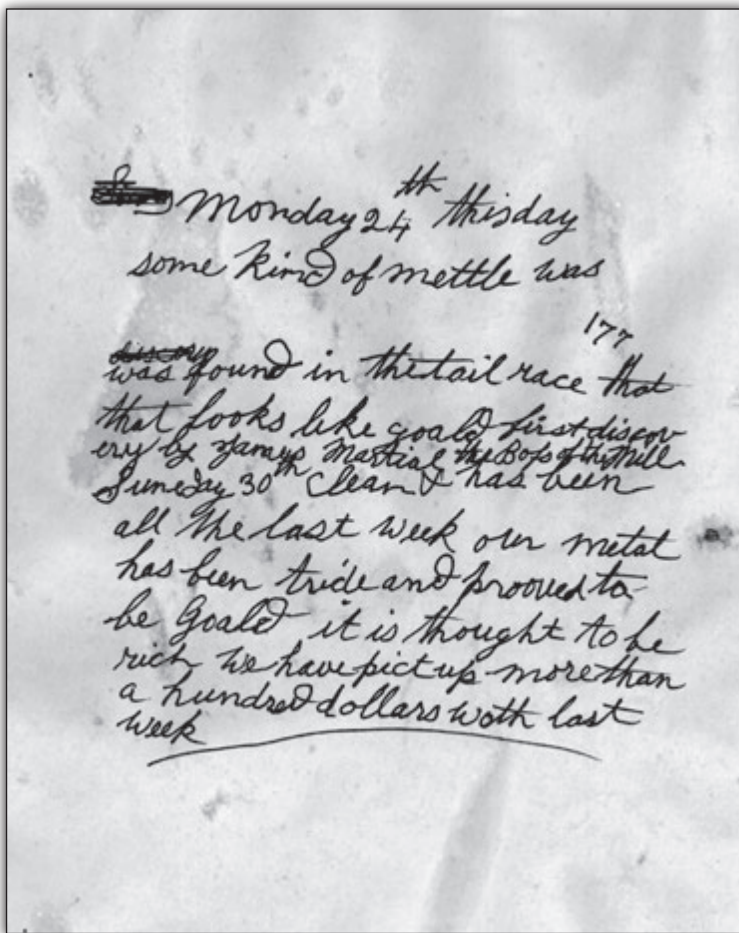 Monday 24th this day
some kind of mettle was
177
was found in the tail race that
that looks like goald first discov
ery by James Martial the Boss of the Mill
Suneday 30th clean & has been
all the last week our metal
has been tride and prooved to
be Goald it is thought to be
rich we have pict up more than
a hundred dollars woth last
week